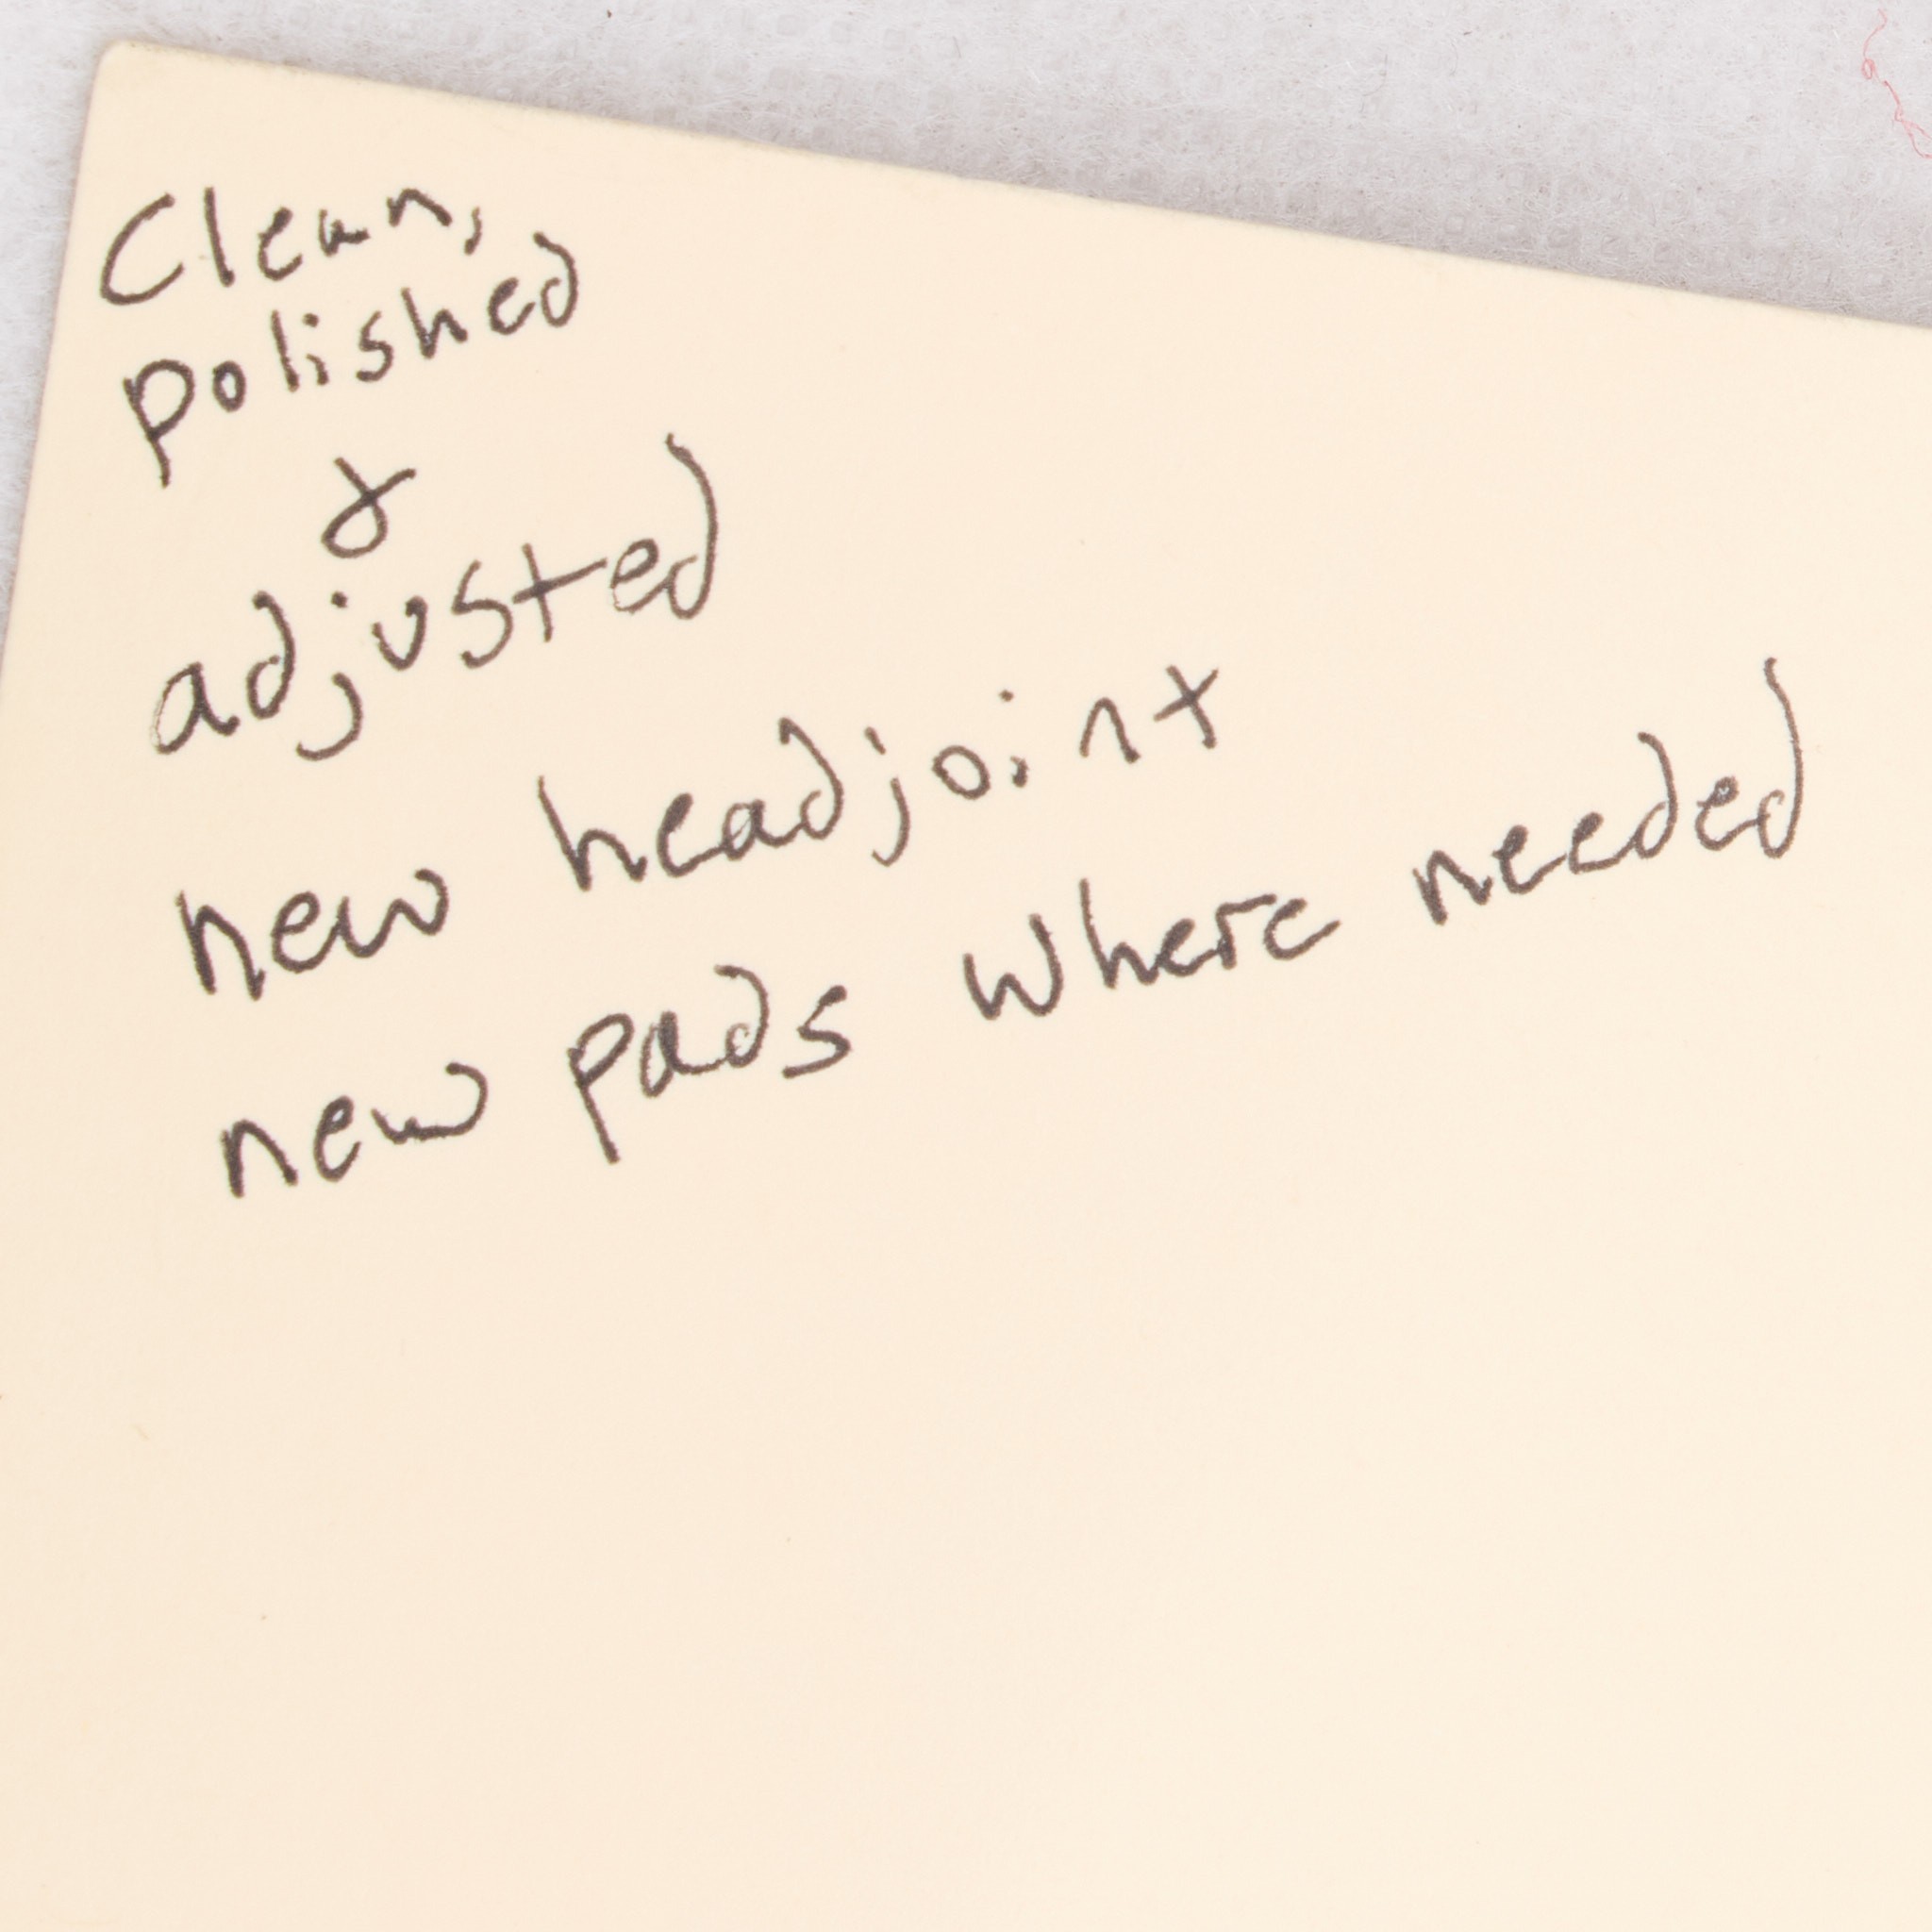 Clean,
polished
&
adjusted
new headjoint
new pads where needed